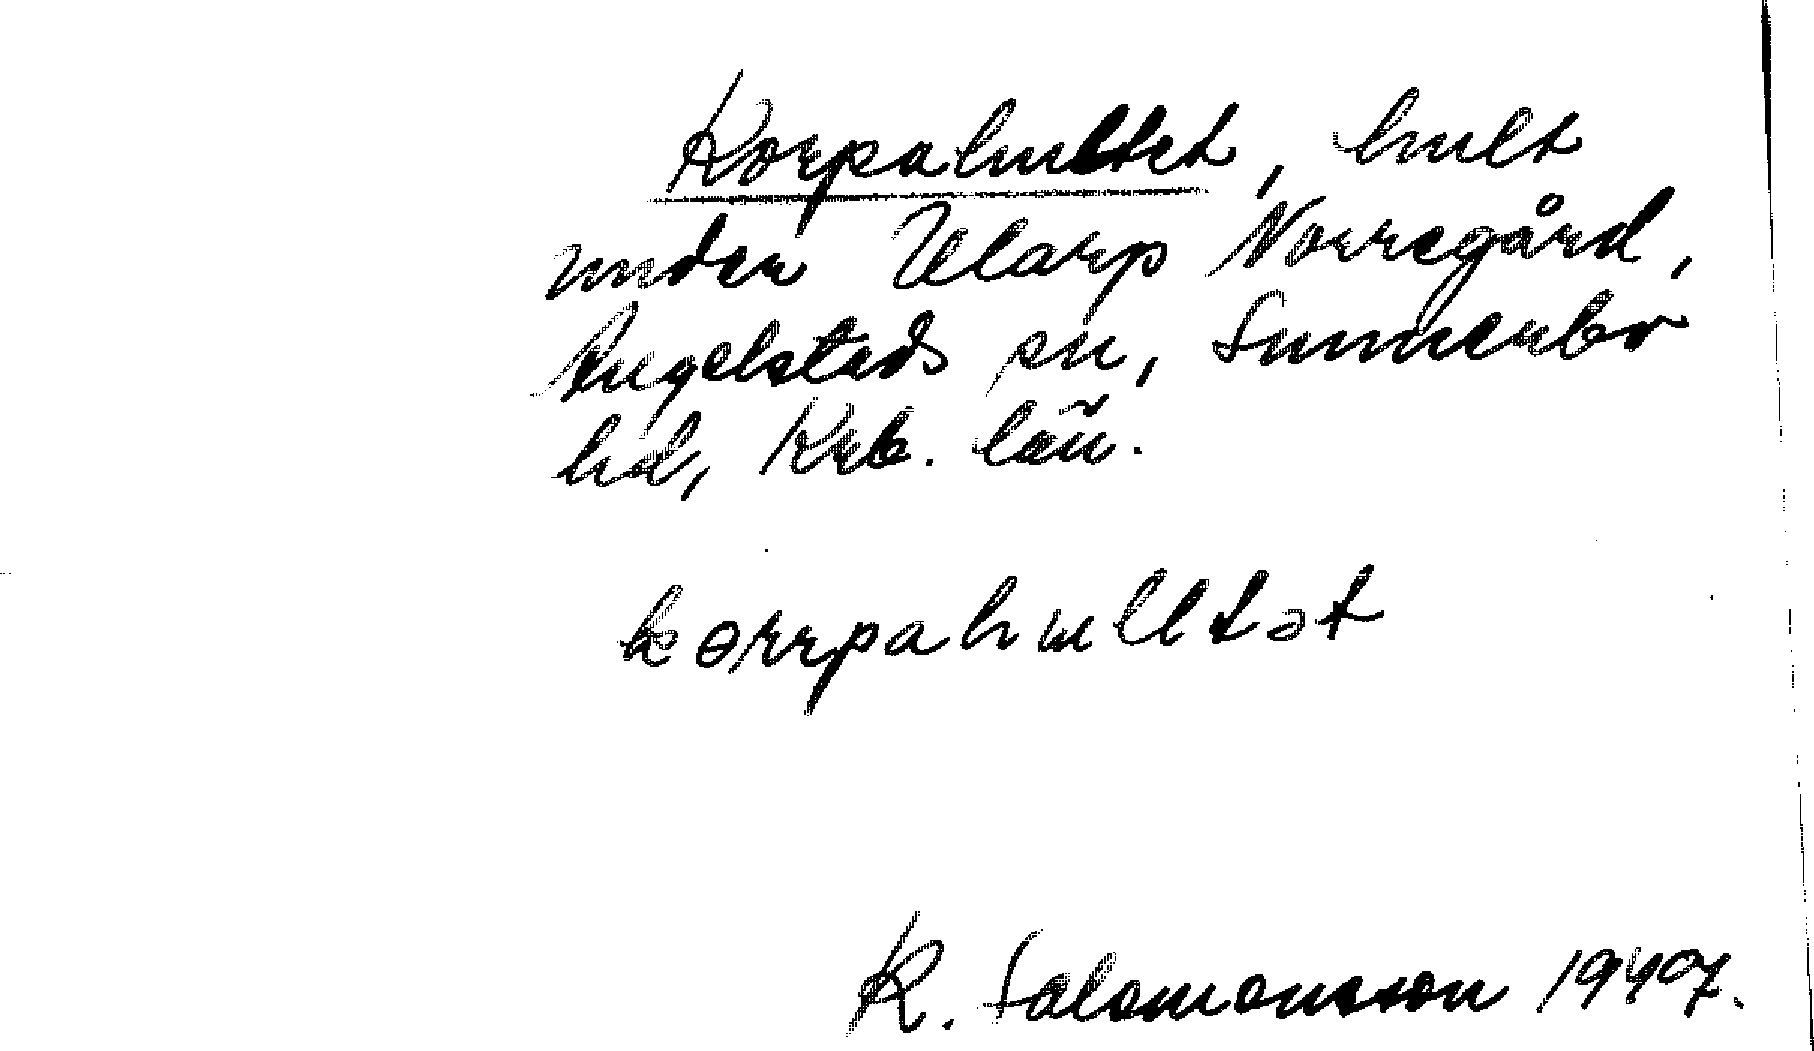 Korpahultet, hult
under Ularp Norregård,
Angelstads sn, Sunnerbo
hd, Krb. län.
korrpahulltət
K. Salomonsson 1947.